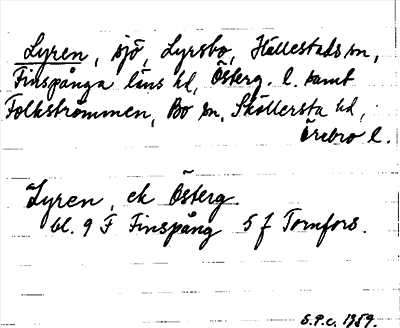 Lyren, sjö, Lyrsbo, Hällestads sn,
Finspånga läns hd, Österg. l. samt
Folkströmmen, Bo sn, Sköllersta hd,
Örebro l.
Lyren, ek Österg.
bl. 9 F Finspång 5 f Tomfors.
S.P.c. 1959.